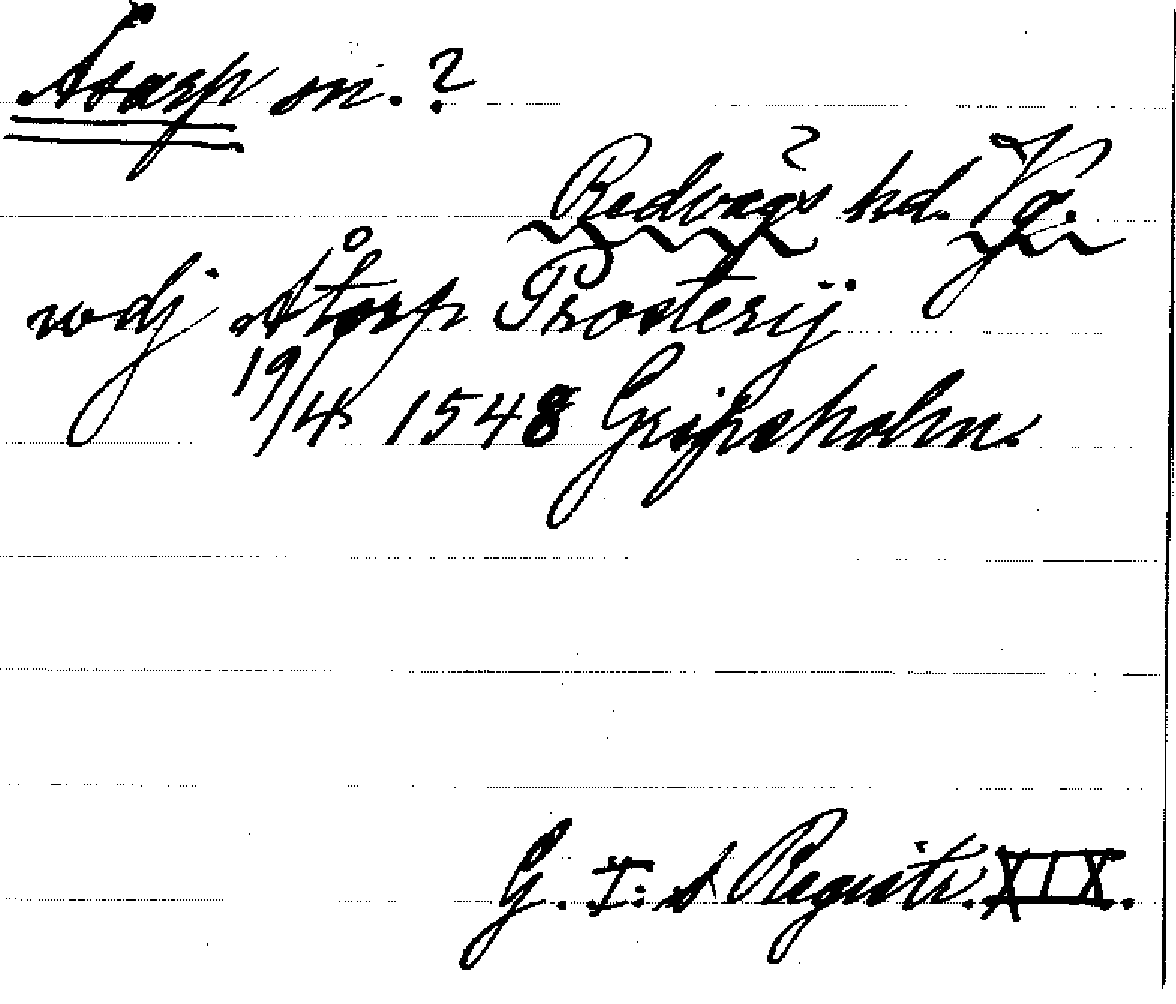 Åsarp sn.?
?
Redvägs hd. Vg.
wdj Åtorp Prosterij
19/4 1548 Gripsholm.
G. I:s Registr. XIX.